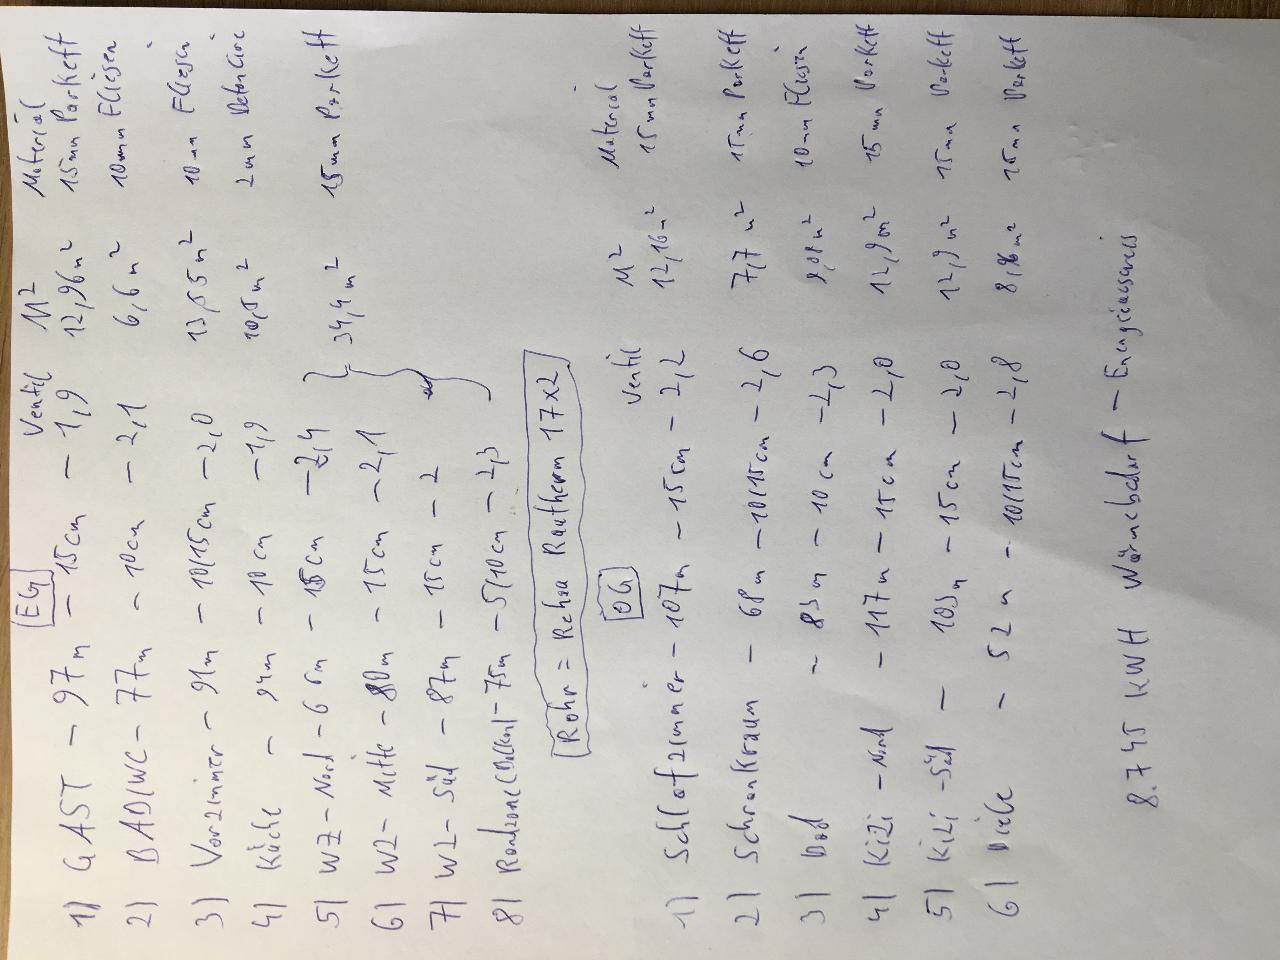 EG Ventil M² Material
1) GAST - 97m - 15cm - 1,9 12,96m² 15mm Parkett
2) BAD/WC - 77m - 10cm - 2,1 6,6m² 10mm Fliesen
3) Vorzimmer - 91m - 10/15cm - 2,0 13,55m² 10mm Fliesen
4) Küche - 94m - 10cm - 1,9 10,5m² 2mm
5) WZ - Nord - 6m - 15cm - 2,4
6) WZ - Mitte - 80m - 15cm - 2,1 34,4m² 15mm Parkett
7) WZ - Süd - 87m - 15cm - 2
8) Randzone - 75m - 5/10cm - 2,3
Rohr = Rehau Rautherm 17x2
OG Ventil M² Material
1) Schlafzimmer - 107m - 15cm - 2,2 12,16m² 15mm Parkett
2) Schrankraum - 68m - 10/15cm - 2,6 7,7m² 15mm Parkett
3) Bad - 83m - 10cm - 2,3 10mm Fliesen
4) KiZi - Nord - 117m - 15cm - 2,0 12,9m² 15mm Parkett
5) KiZi - Süd - 103m - 15cm - 2,0 12,9m² 15mm Parkett
6) Diele - 52m - 10/15cm - 2,8 8,96m² 15mm Parkett
8.745 KWH Wärmebedarf - Energieausweis